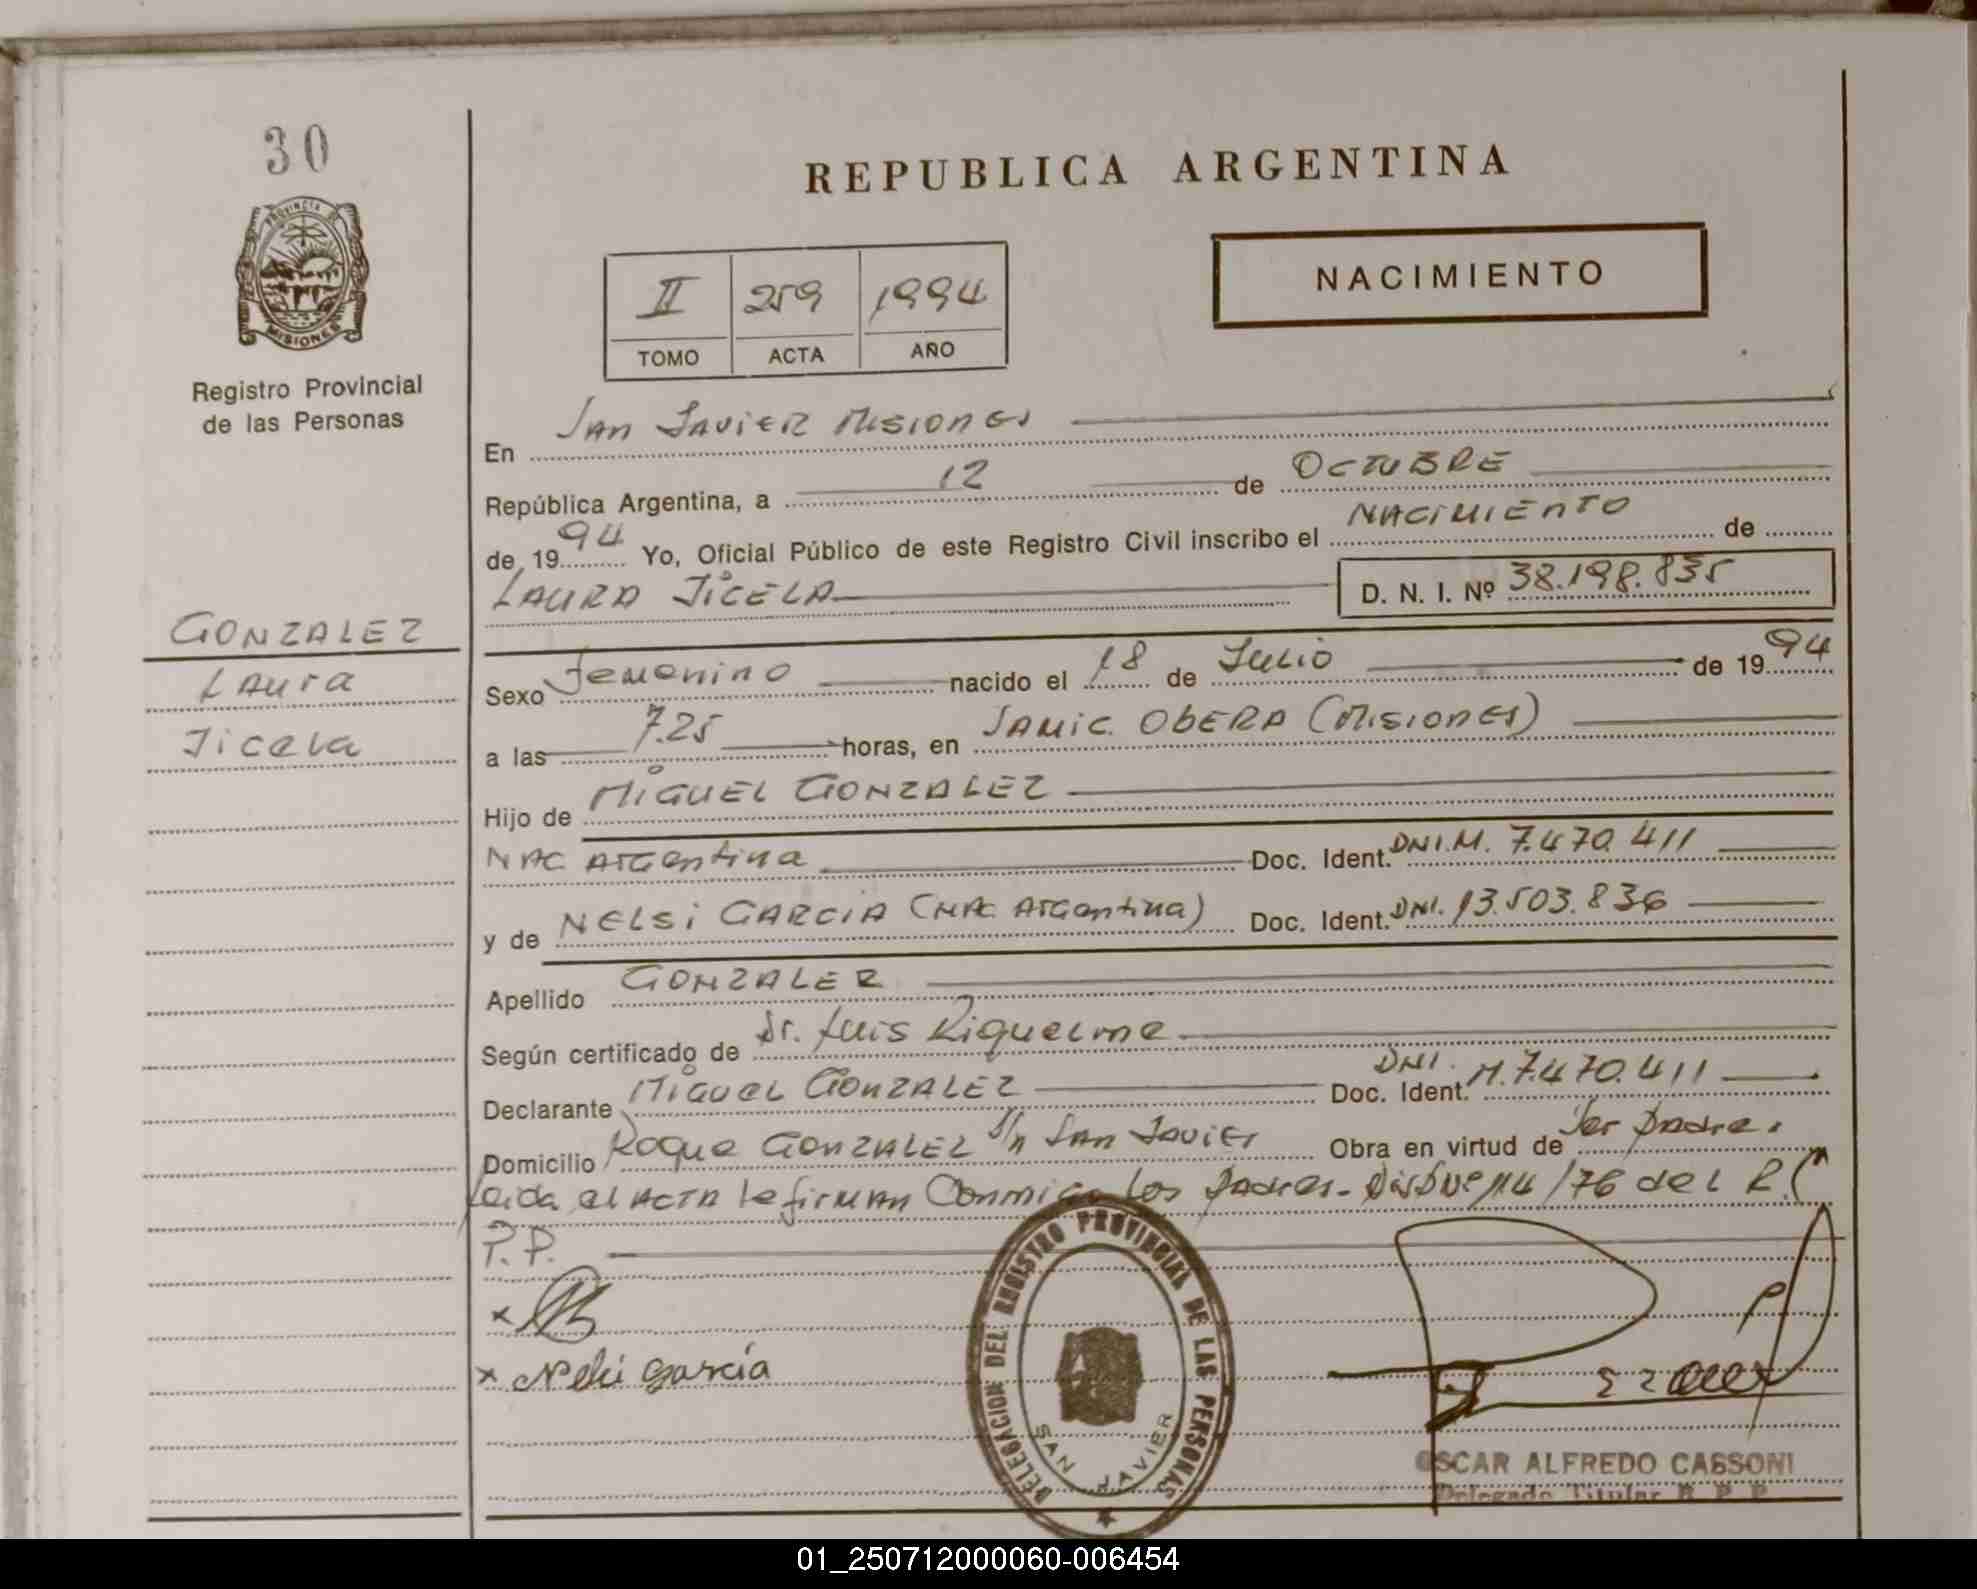 30
PROVINCIA DE
MISIONES
Registro Provincial
de las Personas
REPUBLICA ARGENTINA
NACIMIENTO
II 259 1994
TOMO ACTA AÑO
En San Javier Misiones
República Argentina, a 12 de OCTUBRE
de 1994 Yo, Oficial Público de este Registro Civil inscribo el NACIMIENTO de
LAURA JICELA D. N. I. Nº 38.198.835
GONZALEZ
Laura
Jicela
Sexo Femenino nacido el 18 de Julio de 1994
a las 7.25 horas, en SAMIC. OBERA (MISIONES)
Hijo de MIGUEL GONZALEZ
NAC Argentina Doc. Ident. DNI.M. 7.470.411
y de NELSI GARCIA (NAC Argentina) Doc. Ident. DNI. 13.503.836
Apellido GONZALEZ
Según certificado de Dr. Luis Riquelme
Declarante MIGUEL GONZALEZ Doc. Ident. DNI. M.7.470.411
Domicilio Roque GONZALEZ S/n San Javier Obra en virtud de Ser padre.
Leida el ACTA la firman Conmigo los padres. Disp Nº 14/76 del R.
P.P.
x
x Nelsi García
DELEGACION DEL REGISTRO PROVINCIAL DE LAS PERSONAS
SAN JAVIER
OSCAR ALFREDO CASSONI
Delegado Titular R. P. P.
01_250712000060-006454